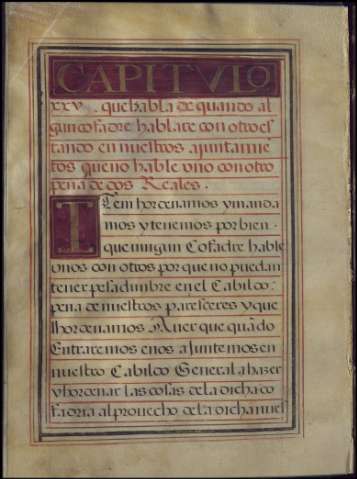 CAPITVLO
xxv. que habla de quando al
gun cofadre hablare con otro es
tando en nuestros ajuntamiē
tos que no hable vno con otro
pena de dos Reales.
ITem hordenamos y manda
mos y tenemos por bien.
que ningun Cofadre hable
vnos con otros por que no puedan
tener pesadumbre en el Cabildo:
pena de nuestros paresceres y que
hordenamos Auer que quādo
Entraremos e nos ajuntemos en
nuestro Cabildo General a hazer
y hordenar las cosas de la dicha co
fadria al prouecho de la dicha nues